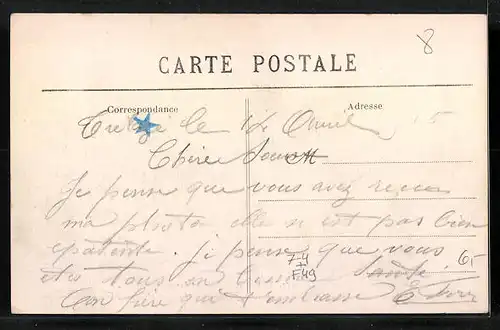 8
CARTE POSTALE
Correspondance
Adresse
le 12 Avril 15
Chère Soeur
Je pense que vous avez reçu
ma photo elle n est pas bien
épatante. je pense que vous
êtes tous en bonne santé.
Ton frère qui t'embrasse
74
F49
65